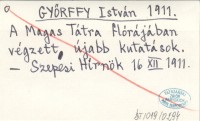 GYŐRFFY István 1911.
A Magas Tátra Flórájában
végzett újabb kutatások.
— Szepesi Hírnök 16 XII 1911.